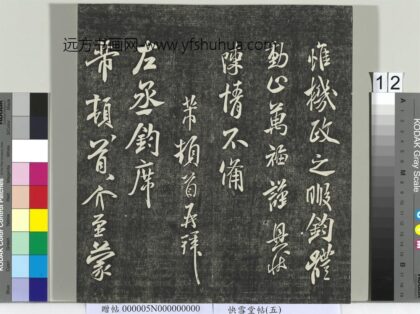 惟機政之暇鈞體
動止萬福謹具状
陳情不備
芾頓首再拜
左丞鈞席
芾頓首介至蒙
远方书画网 www.yfshuhua.com
12
KODAK Gray Scale
KODAK Color Control Patches
赠帖 000005N000000000
快雪堂帖(五)